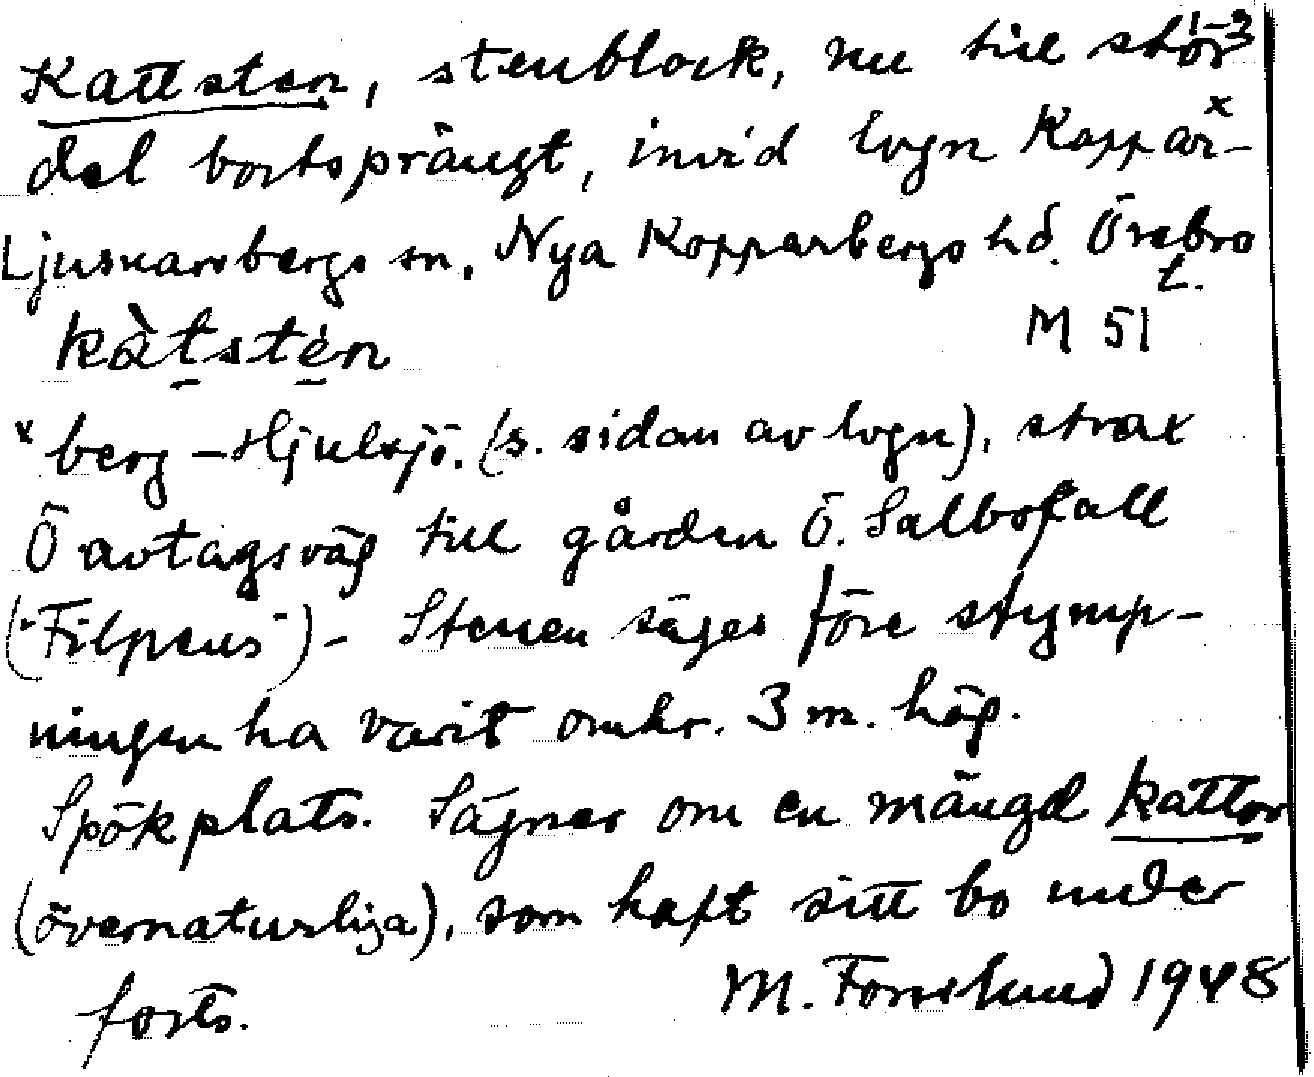 Kattsten, stenblock, nu till stör-
del bortsprängt, invid lvgn Koppar-ˣ
Ljusnarsbergs sn, Nya Kopparbergs hd. Örebro
l.
kàtstén M 51
ˣ berg – Hjulsjö. (s. sidan av lvgn), strax
Ö avtagsväg till gården Ö. Salbofall
("Filpens") – Stenen säges före stymp-
ningen ha varit omkr. 3 m. hög.
Spökplats. Sägner om en mängd kattor
(övernaturliga), som haft sitt bo under
forts. M. Forslund 1948